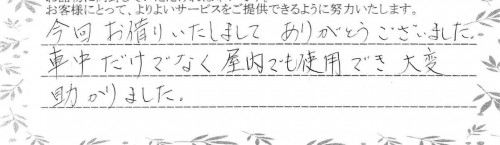 お客様にとって、よりよいサービスをご提供できるように努力いたします。
今回お借りいたしまして ありがとうございました。
車中だけでなく屋内でも使用でき大変
助かりました。